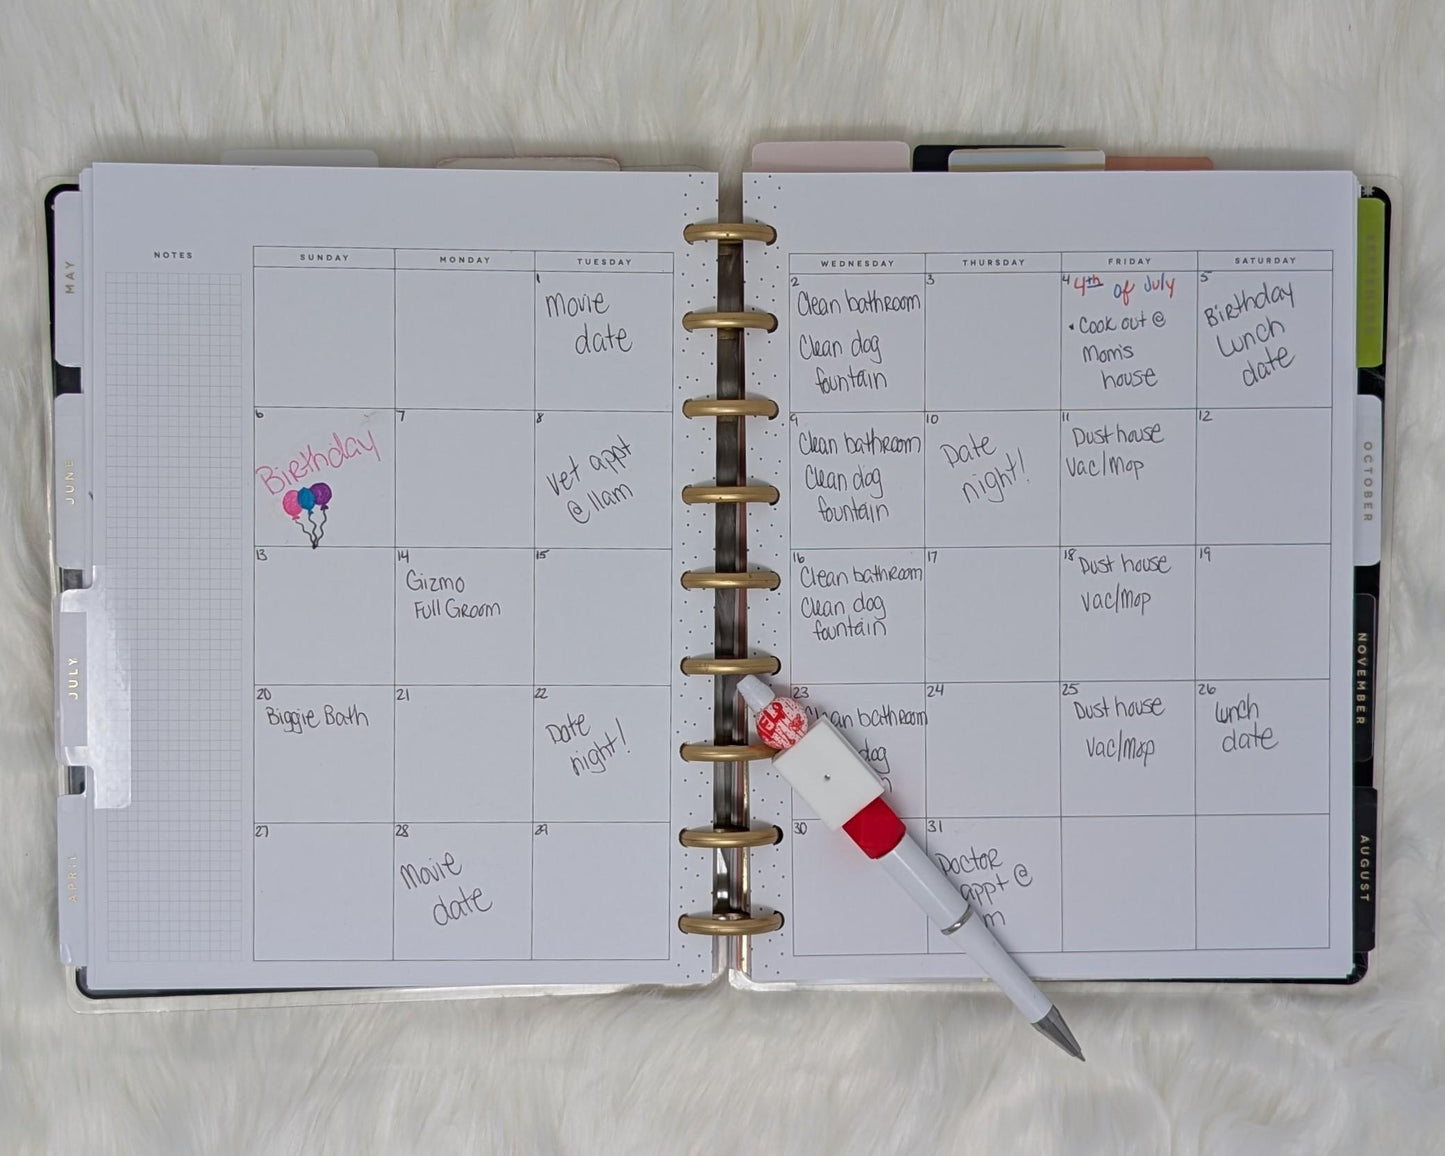 MAY
JUNE
JULY
APRIL
NOTES
SUNDAY
MONDAY
TUESDAY
WEDNESDAY
THURSDAY
FRIDAY
SATURDAY
1
Movie
date
2
Clean bathroom
Clean dog
fountain
3
4
4th of July
• Cook out @
Mom's
house
5
Birthday
Lunch
date
6
Birthday
7
8
Vet appt
@ 11am
9
Clean bathroom
Clean dog
fountain
10
Date
night!
11
Dust house
Vac/Mop
12
13
14
Gizmo
Full Groom
15
16
Clean bathroom
Clean dog
fountain
17
18
Dust house
Vac/Mop
19
20
Biggie Bath
21
22
Date
night!
23
bathroom
dog
24
25
Dust house
Vac/Mop
26
Lunch
date
27
28
Movie
date
29
30
31
Doctor
appt @
OCTOBER
NOVEMBER
AUGUST